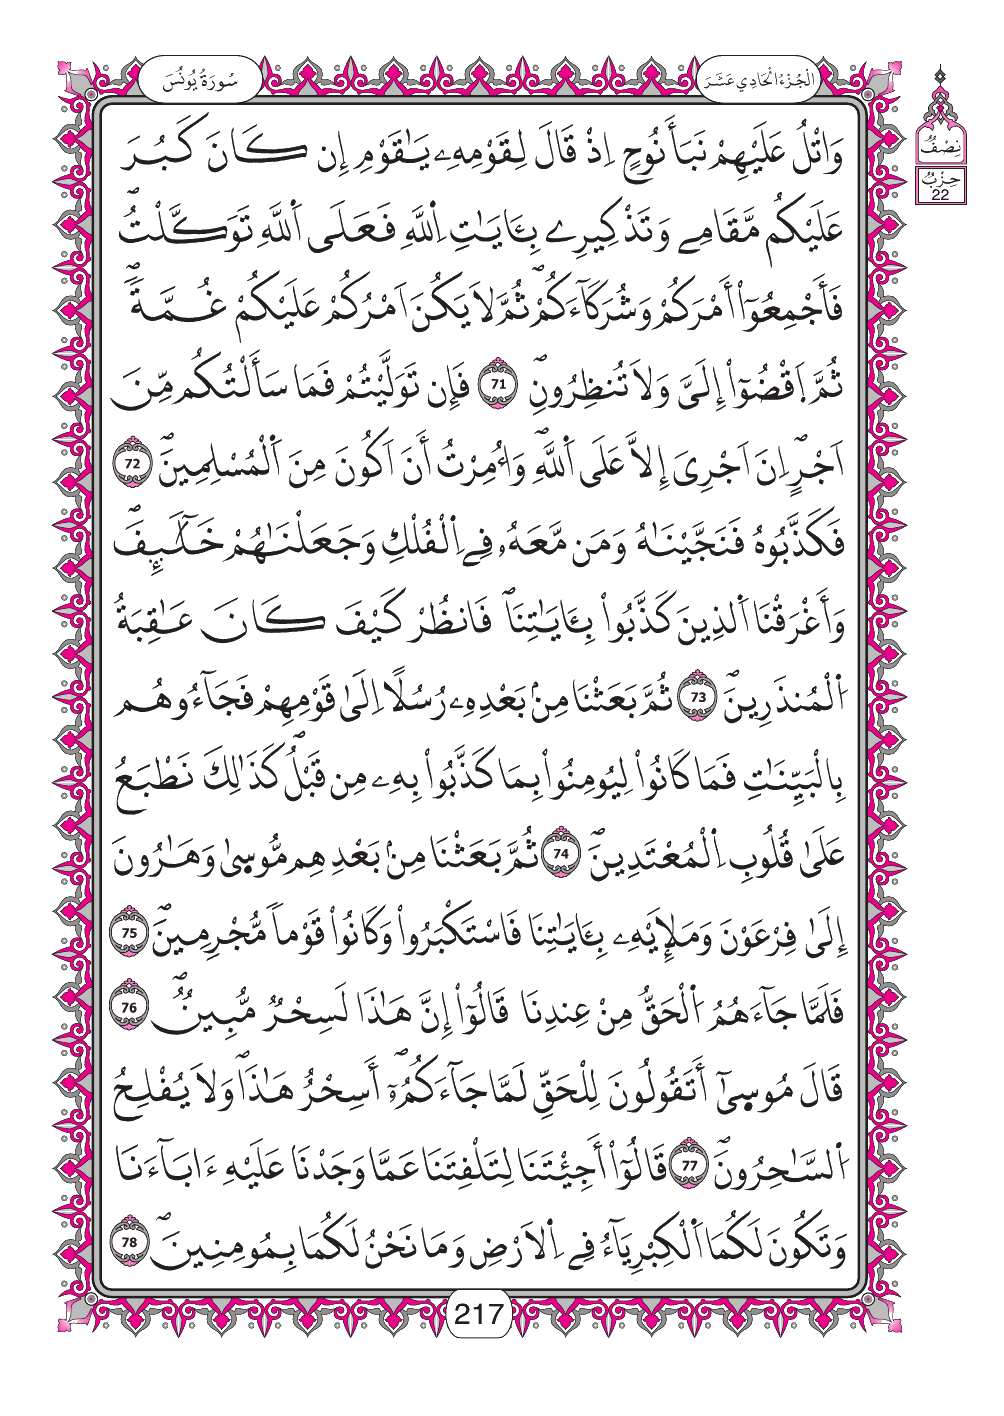 سُورَةُ يُونُسَ
الْجُزْءُ الْحَادِي عَشَرَ
نِصْفُ
حِزْبُ
22
وَاتْلُ عَلَيْهِمْ نَبَأَ نُوحٍ اِذْ قَالَ لِقَوْمِهِۦ يَٰقَوْمِ إِن كَانَ كَبُرَ
عَلَيْكُم مَّقَامِے وَتَذْكِيرِے بِـَٔايَٰتِ اِ۬للَّهِ فَعَلَى اَ۬للَّهِ تَوَكَّلْتُۖ
فَأَجْمِعُوٓاْ أَمْرَكُمْ وَشُرَكَآءَكُمْۖ ثُمَّ لَا يَكُنَ اَمْرُكُمْ عَلَيْكُمْ غُمَّةٗۖ
ثُمَّ اَ۪قْضُوٓاْ إِلَيَّ وَلَا تُنظِرُونِۖ 71 فَإِن تَوَلَّيْتُمْ فَمَا سَأَلْتُكُم مِّنَ
اَجْرٍۖ اِنَ اَجْرِيَ إِلَّا عَلَى اَ۬للَّهِۖ وَأُمِرْتُ أَنَ اَكُونَ مِنَ اَ۬لْمُسْلِمِينَۖ 72
فَكَذَّبُوهُ فَنَجَّيْنَٰهُ وَمَن مَّعَهُۥ فِے اِ۬لْفُلْكِ وَجَعَلْنَٰهُمْ خَلَٰٓئِفَۖ
وَأَغْرَقْنَا اَ۬لذِينَ كَذَّبُواْ بِـَٔايَٰتِنَاۖ فَانظُرْ كَيْفَ كَانَ عَٰقِبَةُ
اُ۬لْمُنذَرِينَۖ 73 ثُمَّ بَعَثْنَا مِنۢ بَعْدِهِۦ رُسُلًا اِلَىٰ قَوْمِهِمْ فَجَآءُوهُم
بِالْبَيِّنَٰتِ فَمَا كَانُواْ لِيُومِنُواْ بِمَا كَذَّبُواْ بِهِۦ مِن قَبْلُۖ كَذَٰلِكَ نَطْبَعُ
عَلَىٰ قُلُوبِ اِ۬لْمُعْتَدِينَۖ 74 ثُمَّ بَعَثْنَا مِنۢ بَعْدِهِم مُّوسِىٰ وَهَٰرُونَ
إِلَىٰ فِرْعَوْنَ وَمَلَإِيْهِۦ بِـَٔايَٰتِنَا فَاسْتَكْبَرُواْ وَكَانُواْ قَوْماٗ مُّجْرِمِينَۖ 75
فَلَمَّا جَآءَهُمُ اُ۬لْحَقُّ مِنْ عِندِنَا قَالُوٓاْ إِنَّ هَٰذَا لَسِحْرٞ مُّبِينٞۖ 76
قَالَ مُوسِىٰٓ أَتَقُولُونَ لِلْحَقِّ لَمَّا جَآءَكُمُۥٓۖ أَسِحْرٌ هَٰذَاۖ وَلَا يُفْلِحُ
اُ۬لسَّٰحِرُونَۖ 77 قَالُوٓاْ أَجِئْتَنَا لِتَلْفِتَنَا عَمَّا وَجَدْنَا عَلَيْهِ ءَابَآءَنَا
وَتَكُونَ لَكُمَا اَ۬لْكِبْرِيَآءُ فِے اِ۬لَارْضِ وَمَا نَحْنُ لَكُمَا بِمُومِنِينَۖ 78
217